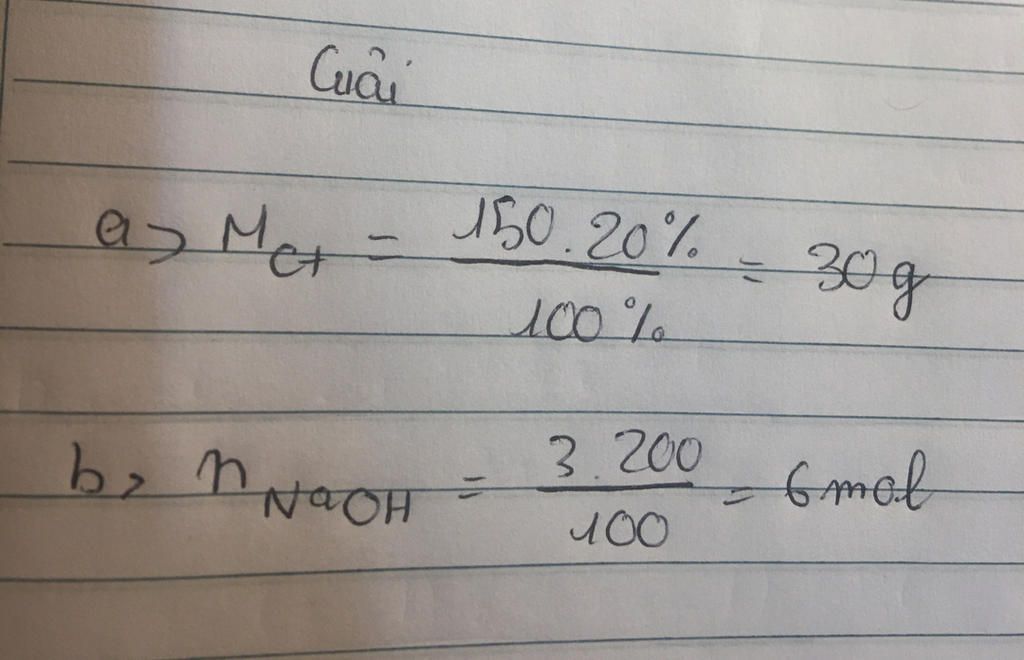 Giải
a> M ct = 150.20% / 100% = 30g
b> n NaOH = 3.200 / 100 = 6mol